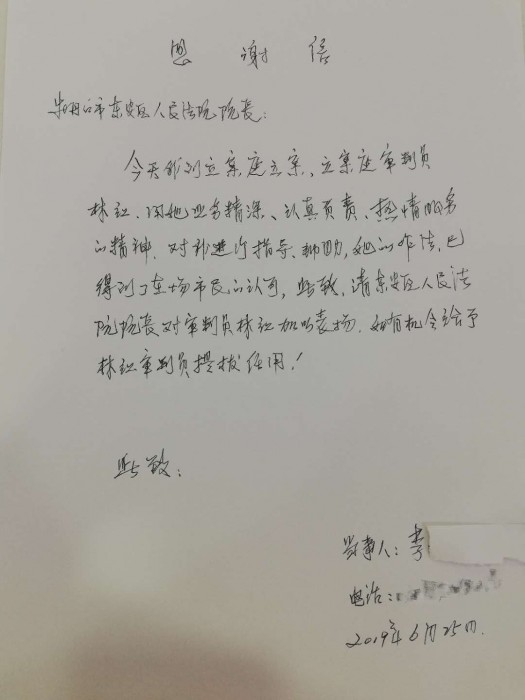 恩谢信
牡丹江市东安区人民法院院长:
今天我到立案庭立案、立案庭审判员
林红、用她业务精深、认真负责、热情服务
的精神、对我进行指导、帮助,她的作法,已
得到了在场市民的认可,此致,请东安区人民法
院院长对审判员林红加以表扬.如有机会给予
林红审判员提拔任用!
此致:
当事人:李
电话:
2019年6月25日.